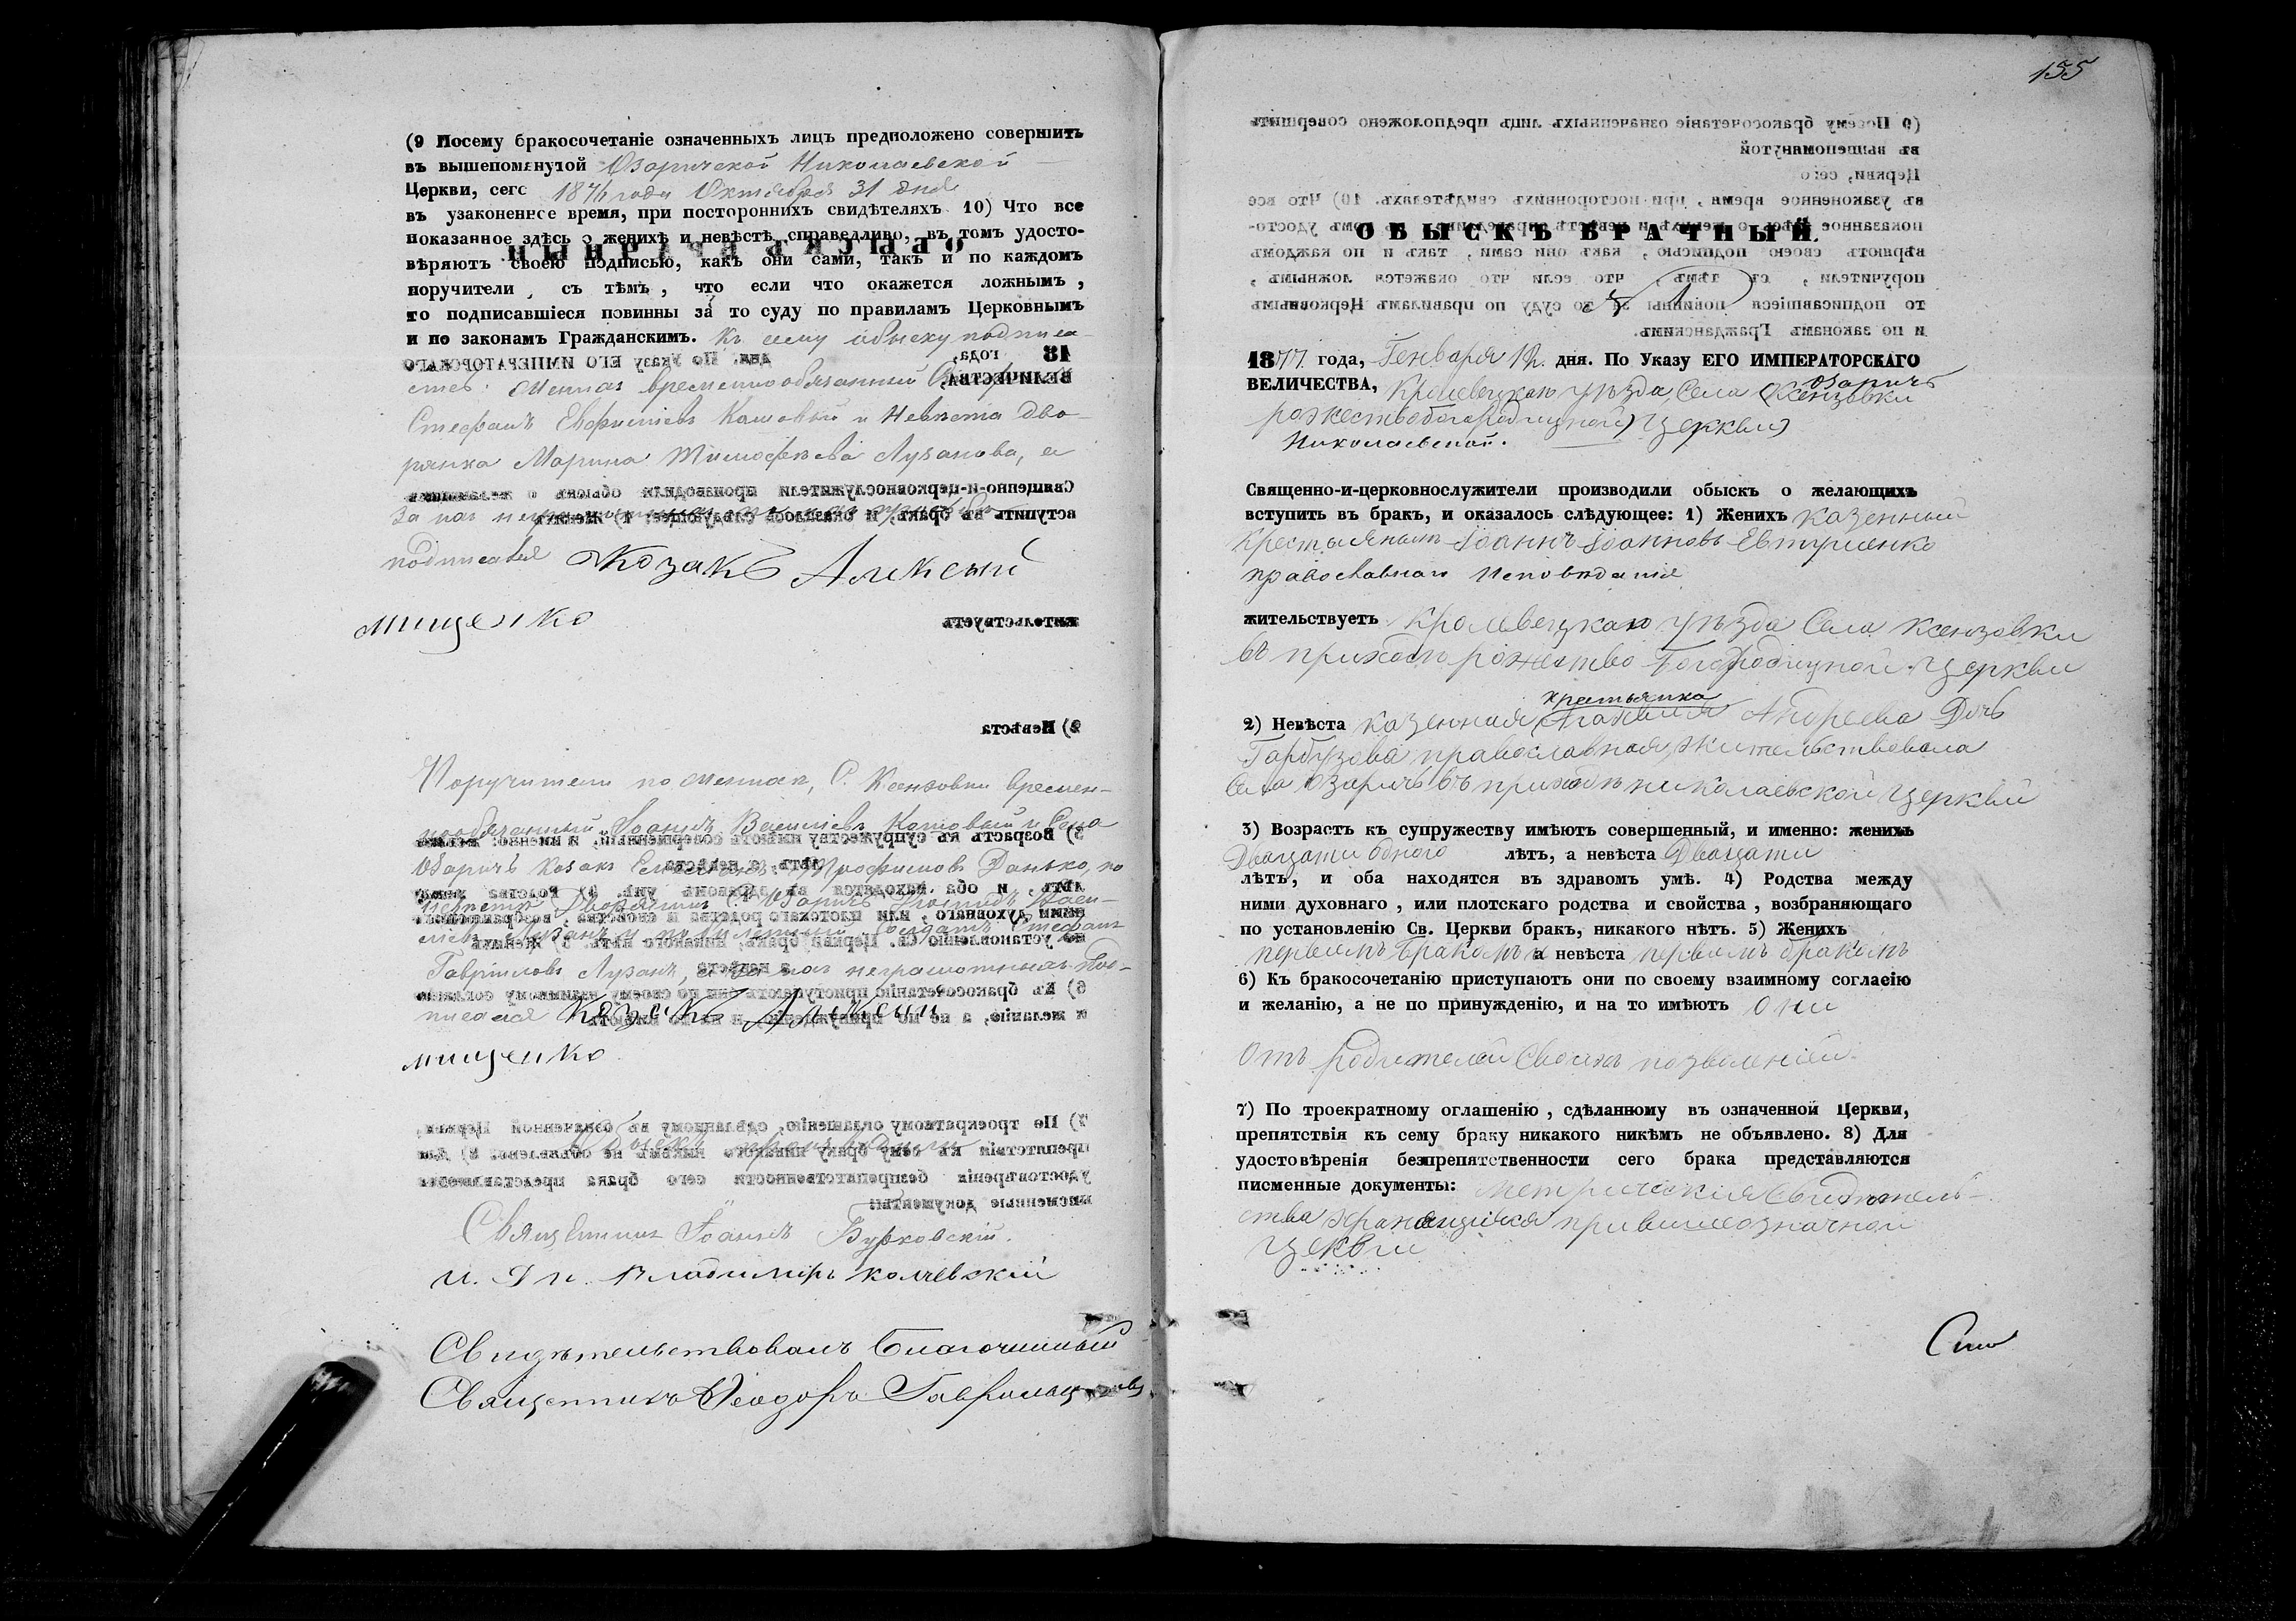 (9 Посему бракосочетаніе означенныхъ лицъ предположено совершить
въ вышепомянутой Озаричской Николаевской
Церкви, сего 1876 года Октября 31 дня
въ узаконенное время, при постороннихъ свидѣтеляхъ 10) Что все
показанное здѣсь о женихѣ и невѣстѣ справедливо, въ томъ удосто-
вѣряютъ своею подписью, какъ они сами, такъ и по каждомъ
поручители, съ тѣмъ, что если что окажется ложнымъ,
то подписавшіеся повинны за то суду по правиламъ Церковнымъ
и по законамъ Гражданскимъ. Къ сему обыску подписа-
лись: Женихъ временнообязанный
Стефанъ Евфиміевъ Кошовый и Невѣста дво-
рянка Марина Тимофѣева Лузанова, а
за нихъ неграмотныхъ
подписался Козакъ Алексѣй
Мищенко
Поручители по женихѣ, С. Ксензовки времен-
нообязанный Іоаннъ Василіевъ Кошовый и Села
Озаричъ козакъ Трофимовъ Данько, по
невѣстѣ Дворянинъ С. Озаричъ Васи-
ліевъ Лузанъ и Солдатъ Стефанъ
Гавріиловъ Лузанъ, а за нихъ неграмотныхъ под-
писался Козакъ Алексѣй
Мищенко
Обыскъ производили
Священникъ Іоаннъ Бурковскій.
И. д. п. Владиміръ
Свидѣтельствовалъ Благочинный
Священникъ Ѳеодоръ
155
ОБЫСКЪ БРАЧНЫЙ.
1877 года, Генваря 12 дня. По Указу ЕГО ИМПЕРАТОРСКАГО
ВЕЛИЧЕСТВА, Кролевецкаго уѣзда Села (Ксензовки Озаричъ
рожествобогородицкой) Церкви
Николаевской.
Священно-и-церковнослужители производили обыскъ о желающихъ
вступить въ бракъ, и оказалось слѣдующее: 1) Женихъ казенный
крестьянинъ Іоаннъ Іоанновъ Евтушенко
православнаго исповѣданія
жительствуетъ Кролевецкаго уѣзда Села Ксензовки
въ приходѣ рожество Богородицкой Церкви
крестьянка
2) Невѣста казенная Андреева Дочь
Гарбузова православная, жительствовала
Села Озаричъ въ приходѣ николаевской Церкви
3) Возрастъ къ супружеству имѣютъ совершенный, и именно: женихъ
Двацати одного лѣтъ, а невѣста Двацати
лѣтъ, и оба находятся въ здравомъ умѣ. 4) Родства между
ними духовнаго, или плотскаго родства и свойства, возбраняющаго
по установленію Св. Церкви бракъ, никакого нѣтъ. 5) Женихъ
первымъ Бракомъ а невѣста первымъ бракомъ
6) Къ бракосочетанію приступаютъ они по своему взаимному согласію
и желанію, а не по принужденію, и на то имѣютъ они
отъ родителей своихъ позволеній.
7) По троекратному оглашенію, сдѣланному въ означенной Церкви,
препятствія къ сему браку никакого никѣмъ не объявлено. 8) Для
удостовѣренія безпрепятственности сего брака представляются
писменные документы: метрическія свидѣтель-
ства хранящіяся при вышеозначной
Цекви